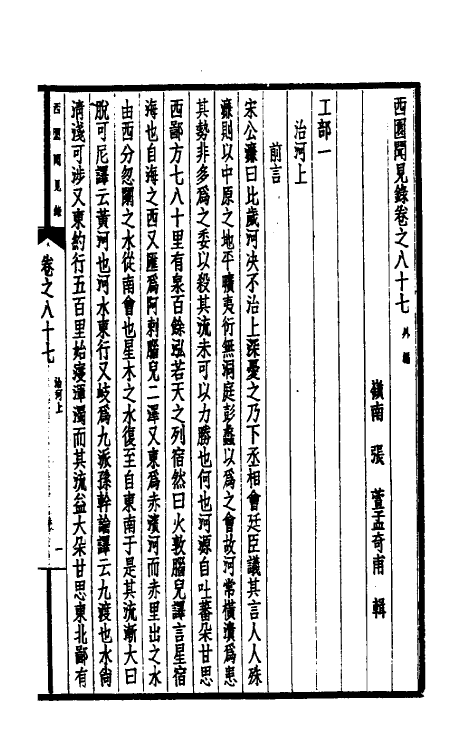 西園聞見錄卷之八十七 外編
嶺南 張 萱孟奇甫 輯
工部一
治河上
前言
宋公濂曰比歲河決不治上深憂之乃下丞相會廷臣議其言人人殊
濂則以中原之地平曠夷衍無洞庭彭蠡以為之會故河常橫潰為患
其勢非多為之委以殺其流未可以力勝也何也河源自吐蕃朵甘思
西鄙方七八十里有泉百餘泓若天之列宿然曰火敦腦兒譯言星宿
海也自海之西又匯為阿剌腦兒二澤又東為赤濱河而赤里出之水
由西分忽闌之水從南會也星木之水復至自東南于是其流漸大曰
脫可尼譯云黃河也河水東行又岐為九派孫幹論譯云九渡也水尚
清淺可涉又東約行五百里始寖渾濁而其流益大朵甘思東北鄙有
西園聞見錄
卷之八十七
治河上
一